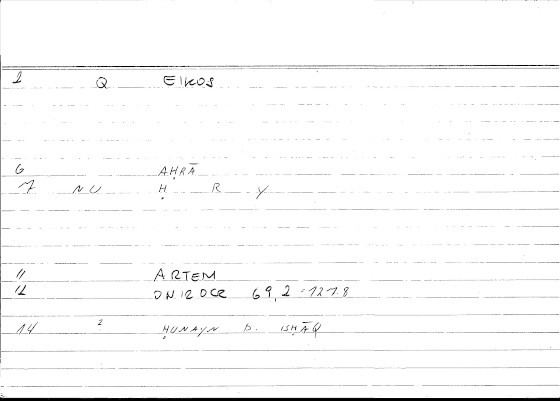 1 Q EIKOS
6 AḤRĀ
7 NU Ḥ R Y
11 ARTEM
12 ONIROCR 69,2 = 127.8
14 2 ḤUNAYN b. ISḤĀQ